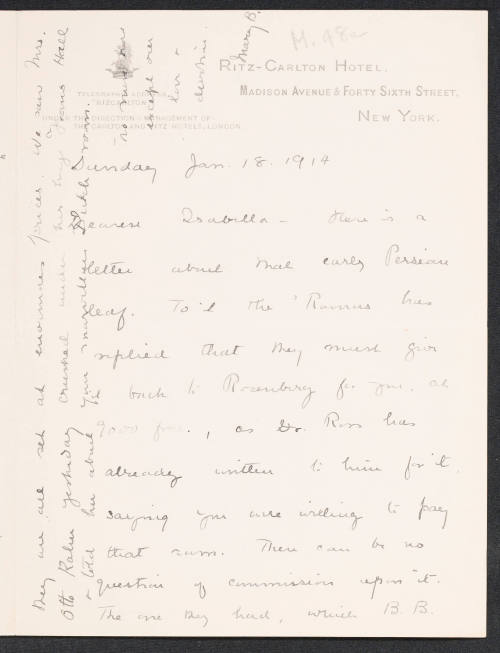 M. 48a
RITZ-CARLTON HOTEL.
MADISON AVENUE & FORTY SIXTH STREET,
NEW YORK.
TELEGRAPHIC ADDRESS
"RIZCARLTON"
UNDER THE DIRECTION & MANAGEMENT OF
THE CARLTON AND RITZ HOTELS, LONDON
Sunday Jan. 18. 1914
Dearest Isabella - Here is a
letter about that early Persian
leaf. To it the Rosens has
replied that they must give
it back to Rosenberg for you, at
9000 , as Dr. Ross has
already written to him for it
saying you are willing to pay
that sum. There can be no
question of commission upon it.
The one they had, which B. B.
They are set at enormous prices. We saw Mrs.
Otto Kahn yesterday crushed under her huge Frans Hals
& told her about your marvellous room.
no more now
except our
love &
devotion.
Mary B.